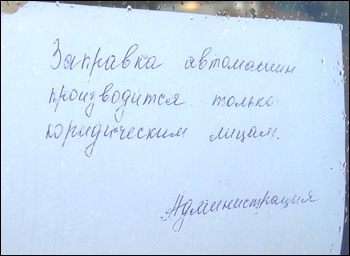 Заправка автомашин
производится только
юридическим лицам.
Администрация